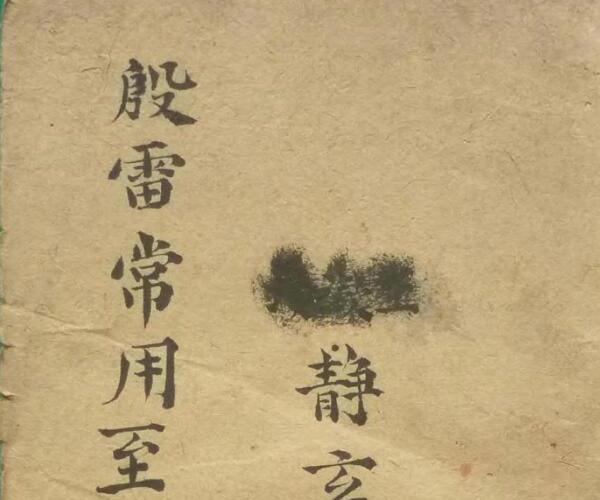 静玄
殷雷常用至